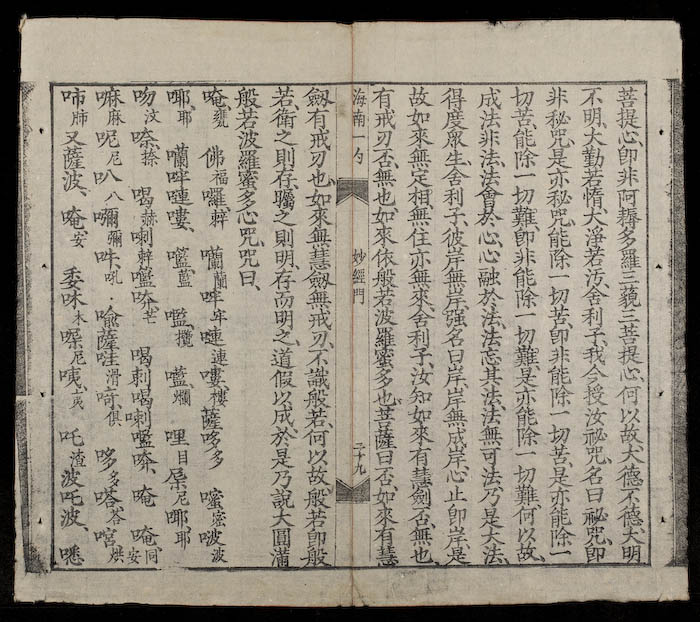 菩提心、即非阿耨多羅三藐三菩提心、何以故、大德不德、大明
不明、大勤若惰、大淨若汚、舍利子、我今授汝祕咒、名曰祕咒、即
非祕咒、是亦祕咒、能除一切苦、即非能除一切苦、是亦能除一
切苦、能除一切難、即非能除一切難、是亦能除一切難、何以故、
成法非法、法會於心、心融於法、法忘其法、法無可法、乃是大法、
得度衆生、舍利子、彼岸無岸、强名曰岸、岸無成岸、心止即岸、是
故如來無定相、無住亦無來、舍利子、汝知如來有慧劍否、無也、
有戒刃否、無也、如來依般若波羅蜜多也、菩薩曰否、如來有慧
海南一勺 妙經門 二十九
劔有戒刃也、如來無慧劔無戒刃、不識般若、何以故、般若即般
若、衛之則存、矚之則明、存而明之、道假以成、於是乃說大圓滿
般若波羅蜜多心咒、咒曰、
唵甕 佛福囉 囒蘭哖年嗹連嘍樓薩哆多 㗷密波波
㖿耶 囒哖嗹嘍、 哩目 尼㖿耶
吻汶 喝赫喇 喝喇喝喇 唵 唵同安
嘛麻呢尼叭八嚩 吽吼 喻薩 滑 俱 哆多嗒荅 烘
㕹肺又薩波、唵安 委㕲木 尼咦夷 吒渣波吒波、㗭